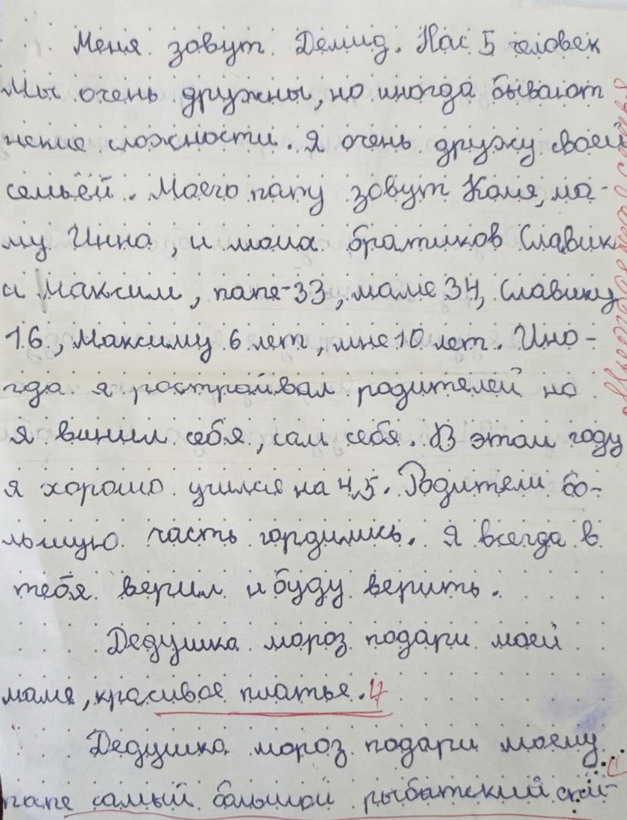 Меня зовут Демид. Нас 5 человек
Мы очень дружны, но иногда бывают
некие сложности. Я очень дружу своей
семьёй. Моего папу зовут Коля, ма-
му Инна, и моих братиков Славик
и Максим, папе-33, маме 34, Славику
16, Максиму 6 лет, мне 10 лет. Ино-
гда я ростраивал родителей но
я винил себя, сам себя. В этом году
я хорошо учился на 4,5. Родители бо-
льшую часть гордились. Я всегда в
тебя верил и буду верить.
Дедушка мороз подари моей
маме, красивое платье. 4
Дедушка мороз подари моему
папе самый большой рыбатский